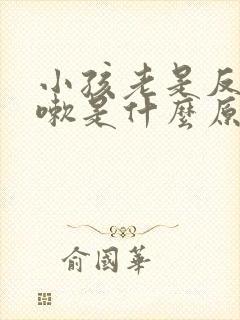 小孩老是反
嗽是什麼原
俞國華